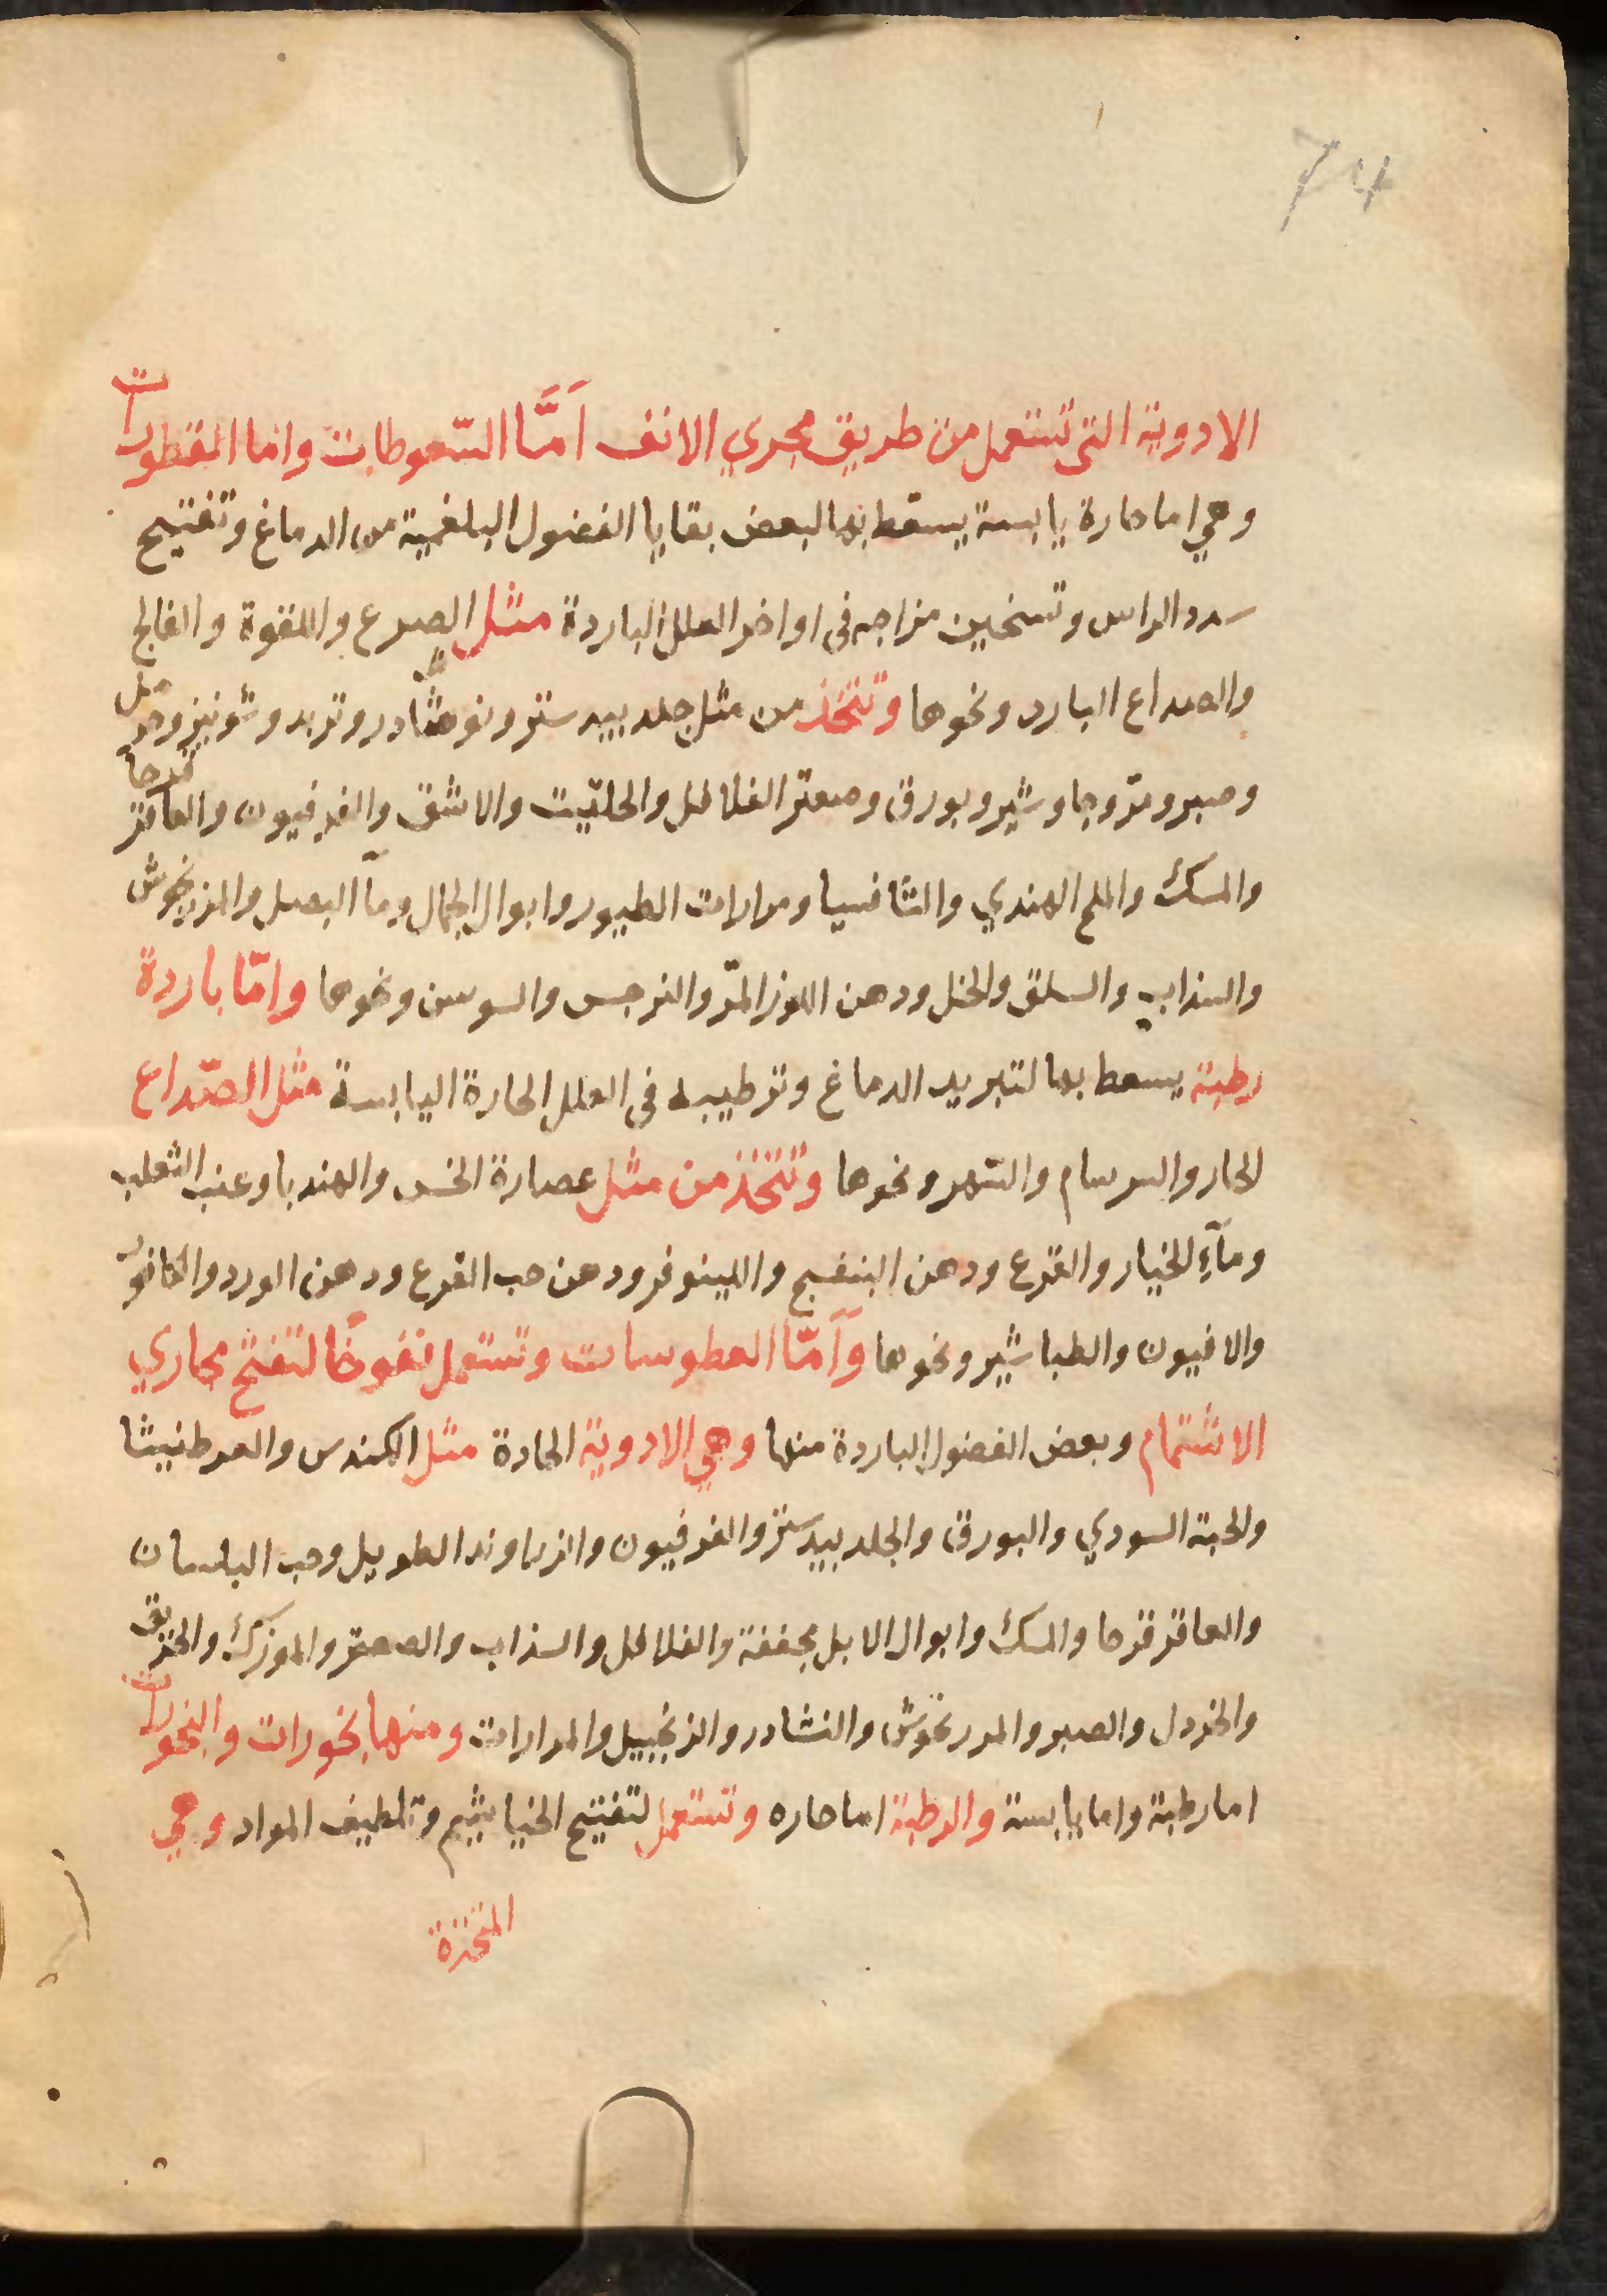 74
الادوية التى تستعمل من طريق مجري الانف اَمَّا السّعوطات واما القطورات
وهي اما حارة يابسة يسقط بها لبعض بقايا الفضول البلغمية من الدماغ وتفتيح
سدد الراس وتسخين مزاجه فى اواخر العلل الباردة مثل الصرع واللقوة والفالج
والصداع البارد ونحوها وتتخذ من مثل جلد بيدستر ونوشادر وتربد وشونيز وحرمل
وصبر ومرّ وجاوشير وبورق وصعتر الفلافل والحلتيت والاشق والفرفيون والعاقرقرحا
والمسك والملح الهندي والثافسيا ومرارات الطيور وابوال الجمال ومآ البصل والمرزنجوش
والسذاب والسلق والخل ودهن اللوز المرّ والنرجس والسوسن ونحوها وامّا باردة
رطبة يسعط بها لتبريد الدماغ وترطيبه فى العلل الحارة اليابسة مثل الصّداع
الحار والسرسام والسّهر ونحوها وتتخذ من مثل عصارة الخس والهندبا وعنب الثعلب
ومآء الخيار والقرع ودهن البنفسج واللينوفر ودهن حب القرع ودهن الورد والكافور
والافيون والطباشير ونحوها وَاَمّا العطوسات وتستعمل نفوخًا لتفتح مجاري
الاشتمام وبعض الفضول الباردة منها وهي الادوية الحادة مثل الكندس والعرطنيثا
والحبة السودي والبورق والجلد بيدستر والفرفيون والزراوند الطويل وحب البلسان
والعاقر قرحا والمسك وابوال الابل مجففة والفلافل والسذاب والصعتر والموزك والخربق
والخردل والصبر والمررنخوش والنشادر والزنجبيل والمرارات ومنها بخورات والبخورات
اما رطبة واما يابسة والرطبة اما حاره وتستعمل لتفتيح الخياشيم وتلطيف المواد وهي
المتخذة